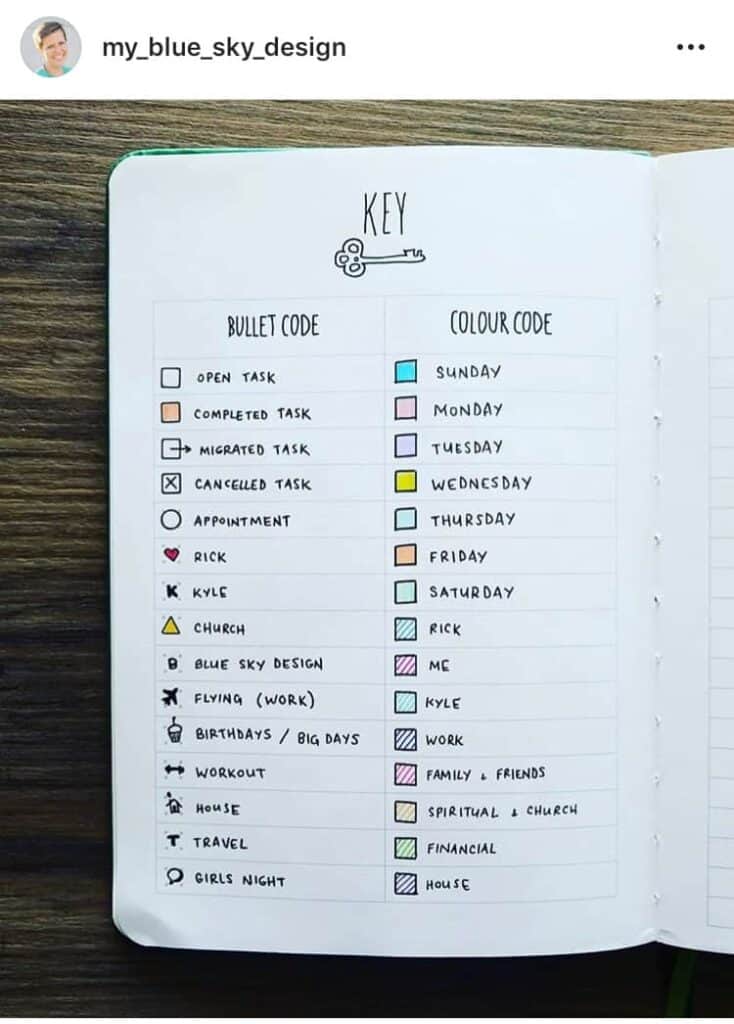 my_blue_sky_design
KEY
BULLET CODE
OPEN TASK
COMPLETED TASK
MIGRATED TASK
CANCELLED TASK
APPOINTMENT
RICK
K KYLE
CHURCH
B BLUE SKY DESIGN
FLYING (WORK)
BIRTHDAYS / BIG DAYS
WORKOUT
HOUSE
T TRAVEL
GIRLS NIGHT
COLOUR CODE
SUNDAY
MONDAY
TUESDAY
WEDNESDAY
THURSDAY
FRIDAY
SATURDAY
RICK
ME
KYLE
WORK
FAMILY & FRIENDS
SPIRITUAL & CHURCH
FINANCIAL
HOUSE